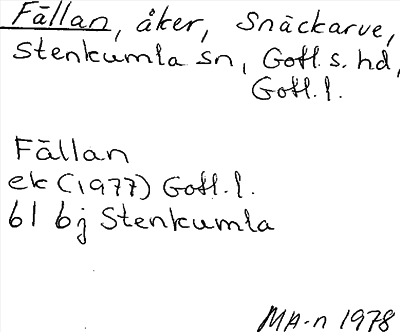 Fällan, åker, Snäckarve,
Stenkumla sn, Gotl. s. hd,
Gotl. l.
Fällan
ek (1977) Gotl. l.
bl bj Stenkumla
MA-n 1978